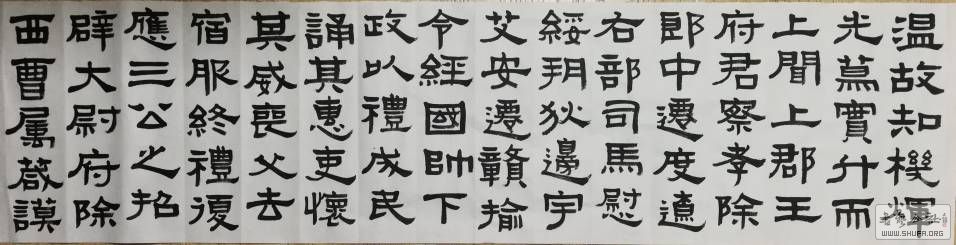 温故知機輝
光篤實升而
上聞上郡王
府君察孝除
郎中遷度遼
右部司馬慰
綏朔狄邊宇
艾安遷贛揄
令經國帥下
政以禮成民
誦其惠吏懷
其威喪父去
宿服終禮復
應三公之招
辟大尉府除
西曹属箴謨
WWW.SHUFA.ORG